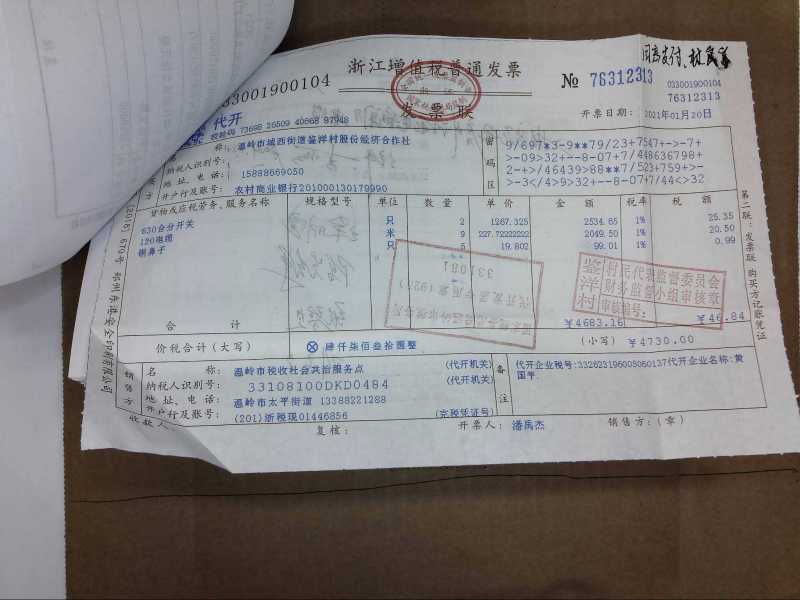 033001900104
浙江增值税普通发票
发票联
№ 76312313
033001900104
76312313
代开
校验码 73698 26509 40868 87948
开票日期: 2021年01月20日
名称: 温岭市城西街道鉴洋村股份经济合作社
纳税人识别号:
地址、电话: 15888669050
开户行及账号: 农村商业银行201000130179990
密码区
9/697*3-9**79/23+7547+->-7+
>-09>32+--8-07+7/448636798+
2-+>/46439>88**7/523+759+>-
>-3</4>9>32+--8-07+7/44<>32
货物或应税劳务、服务名称 规格型号 单位 数量 单价 金额 税率 税额
630台分开关 只 2 1267.325 2534.65 1% 25.35
120电缆 米 9 227.72222222 2049.50 1% 20.50
铜鼻子 只 5 19.802 99.01 1% 0.99
合计 ¥4683.16 ¥46.84
价税合计(大写) ⊗肆仟柒佰叁拾圆整 (小写) ¥4730.00
销售方
名称: 温岭市税收社会共治服务点 (代开机关)
纳税人识别号: 33108100DKD0484 (代开机关)
地址、电话: 温岭市太平街道 13388221288
开户行及账号: (201)浙税现01446856 (完税凭证号)
备注
代开企业税号:332623196005060137代开企业名称:黄
国平
收款人:
复核:
开票人: 潘禹杰
销售方:(章)
第二联:发票联 购买方记账凭证
鉴洋村
村民代表监督委员会
财务监督小组审核章
审核编号:
331081
代开发票专用章(192)